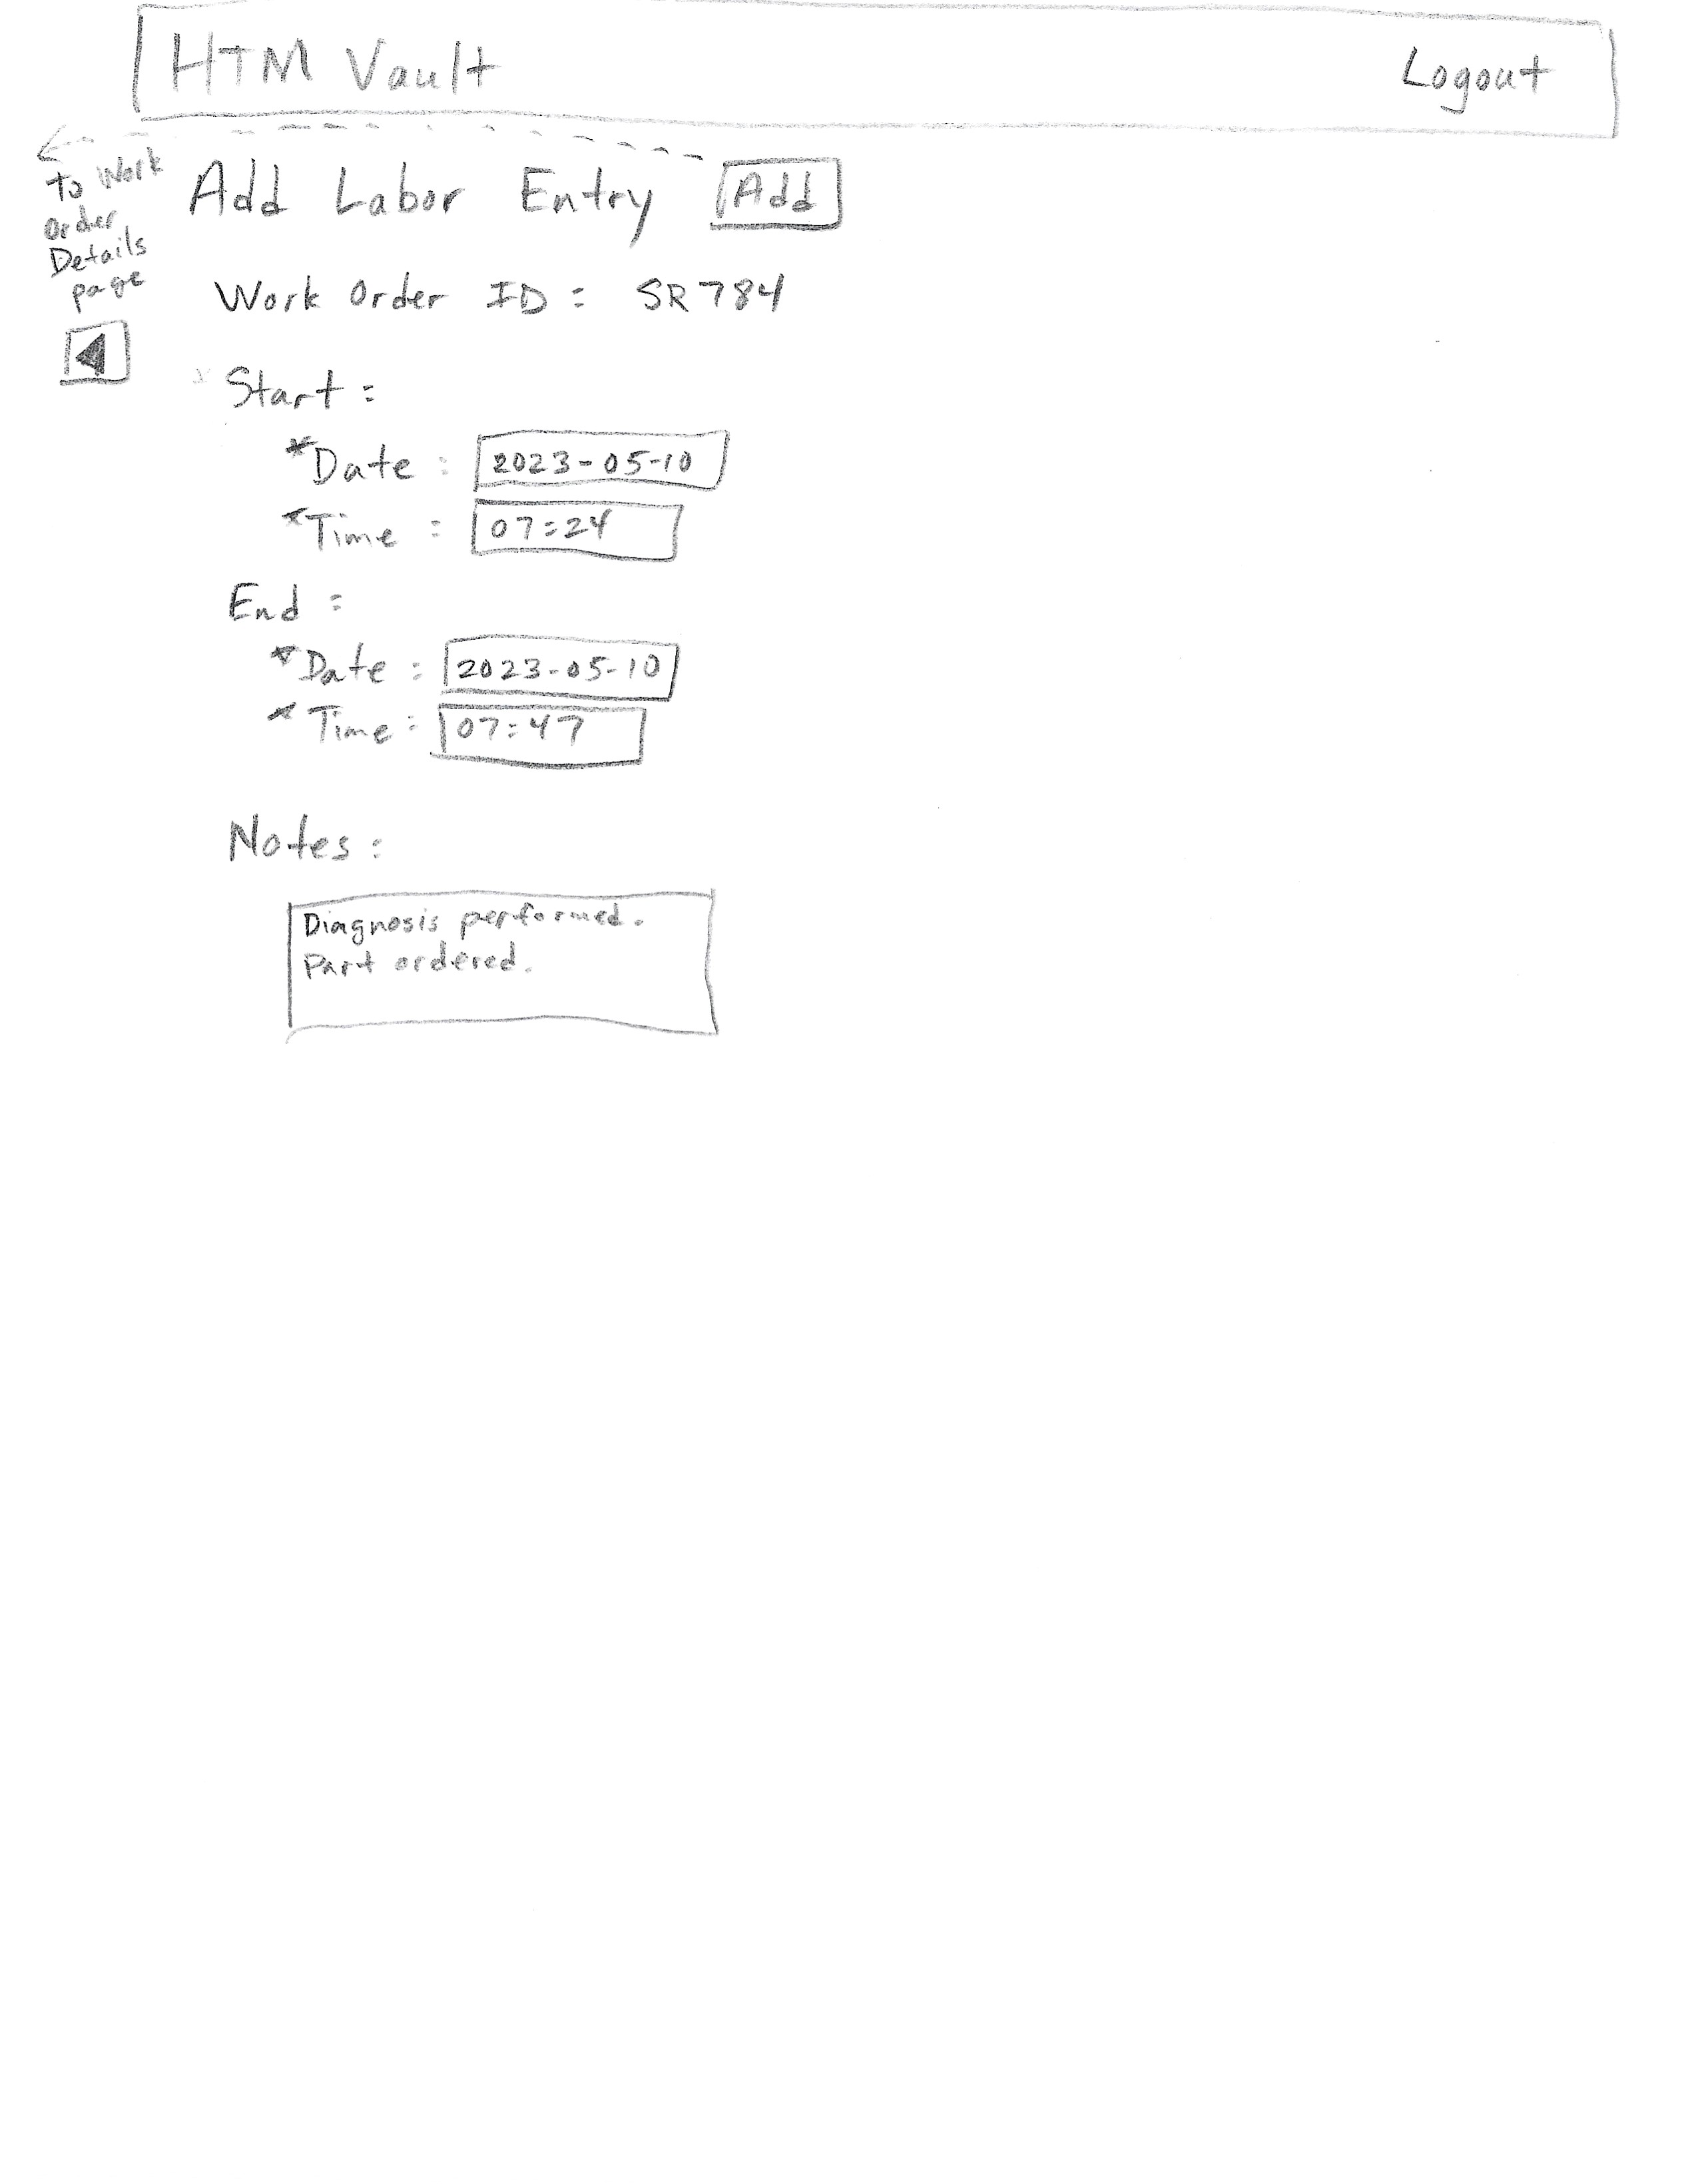 HTM Vault Logout
To Work
order
Details
page
Add Labor Entry Add
Work Order ID: SR784
Start:
*Date: 2023-05-10
*Time: 07:24
End:
*Date: 2023-05-10
*Time: 07:47
Notes:
Diagnosis performed.
Part ordered.